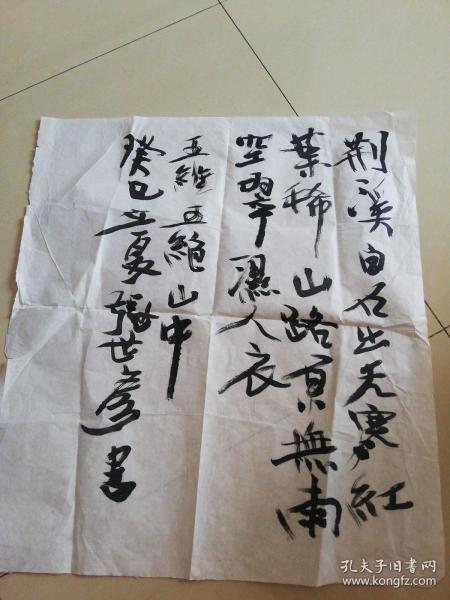 荆溪白石出天寒紅
葉稀山路無雨
空翠濕人衣
王維五絕山中
癸巳立夏張世彦書
孔夫子旧书网
www.kongfz.com